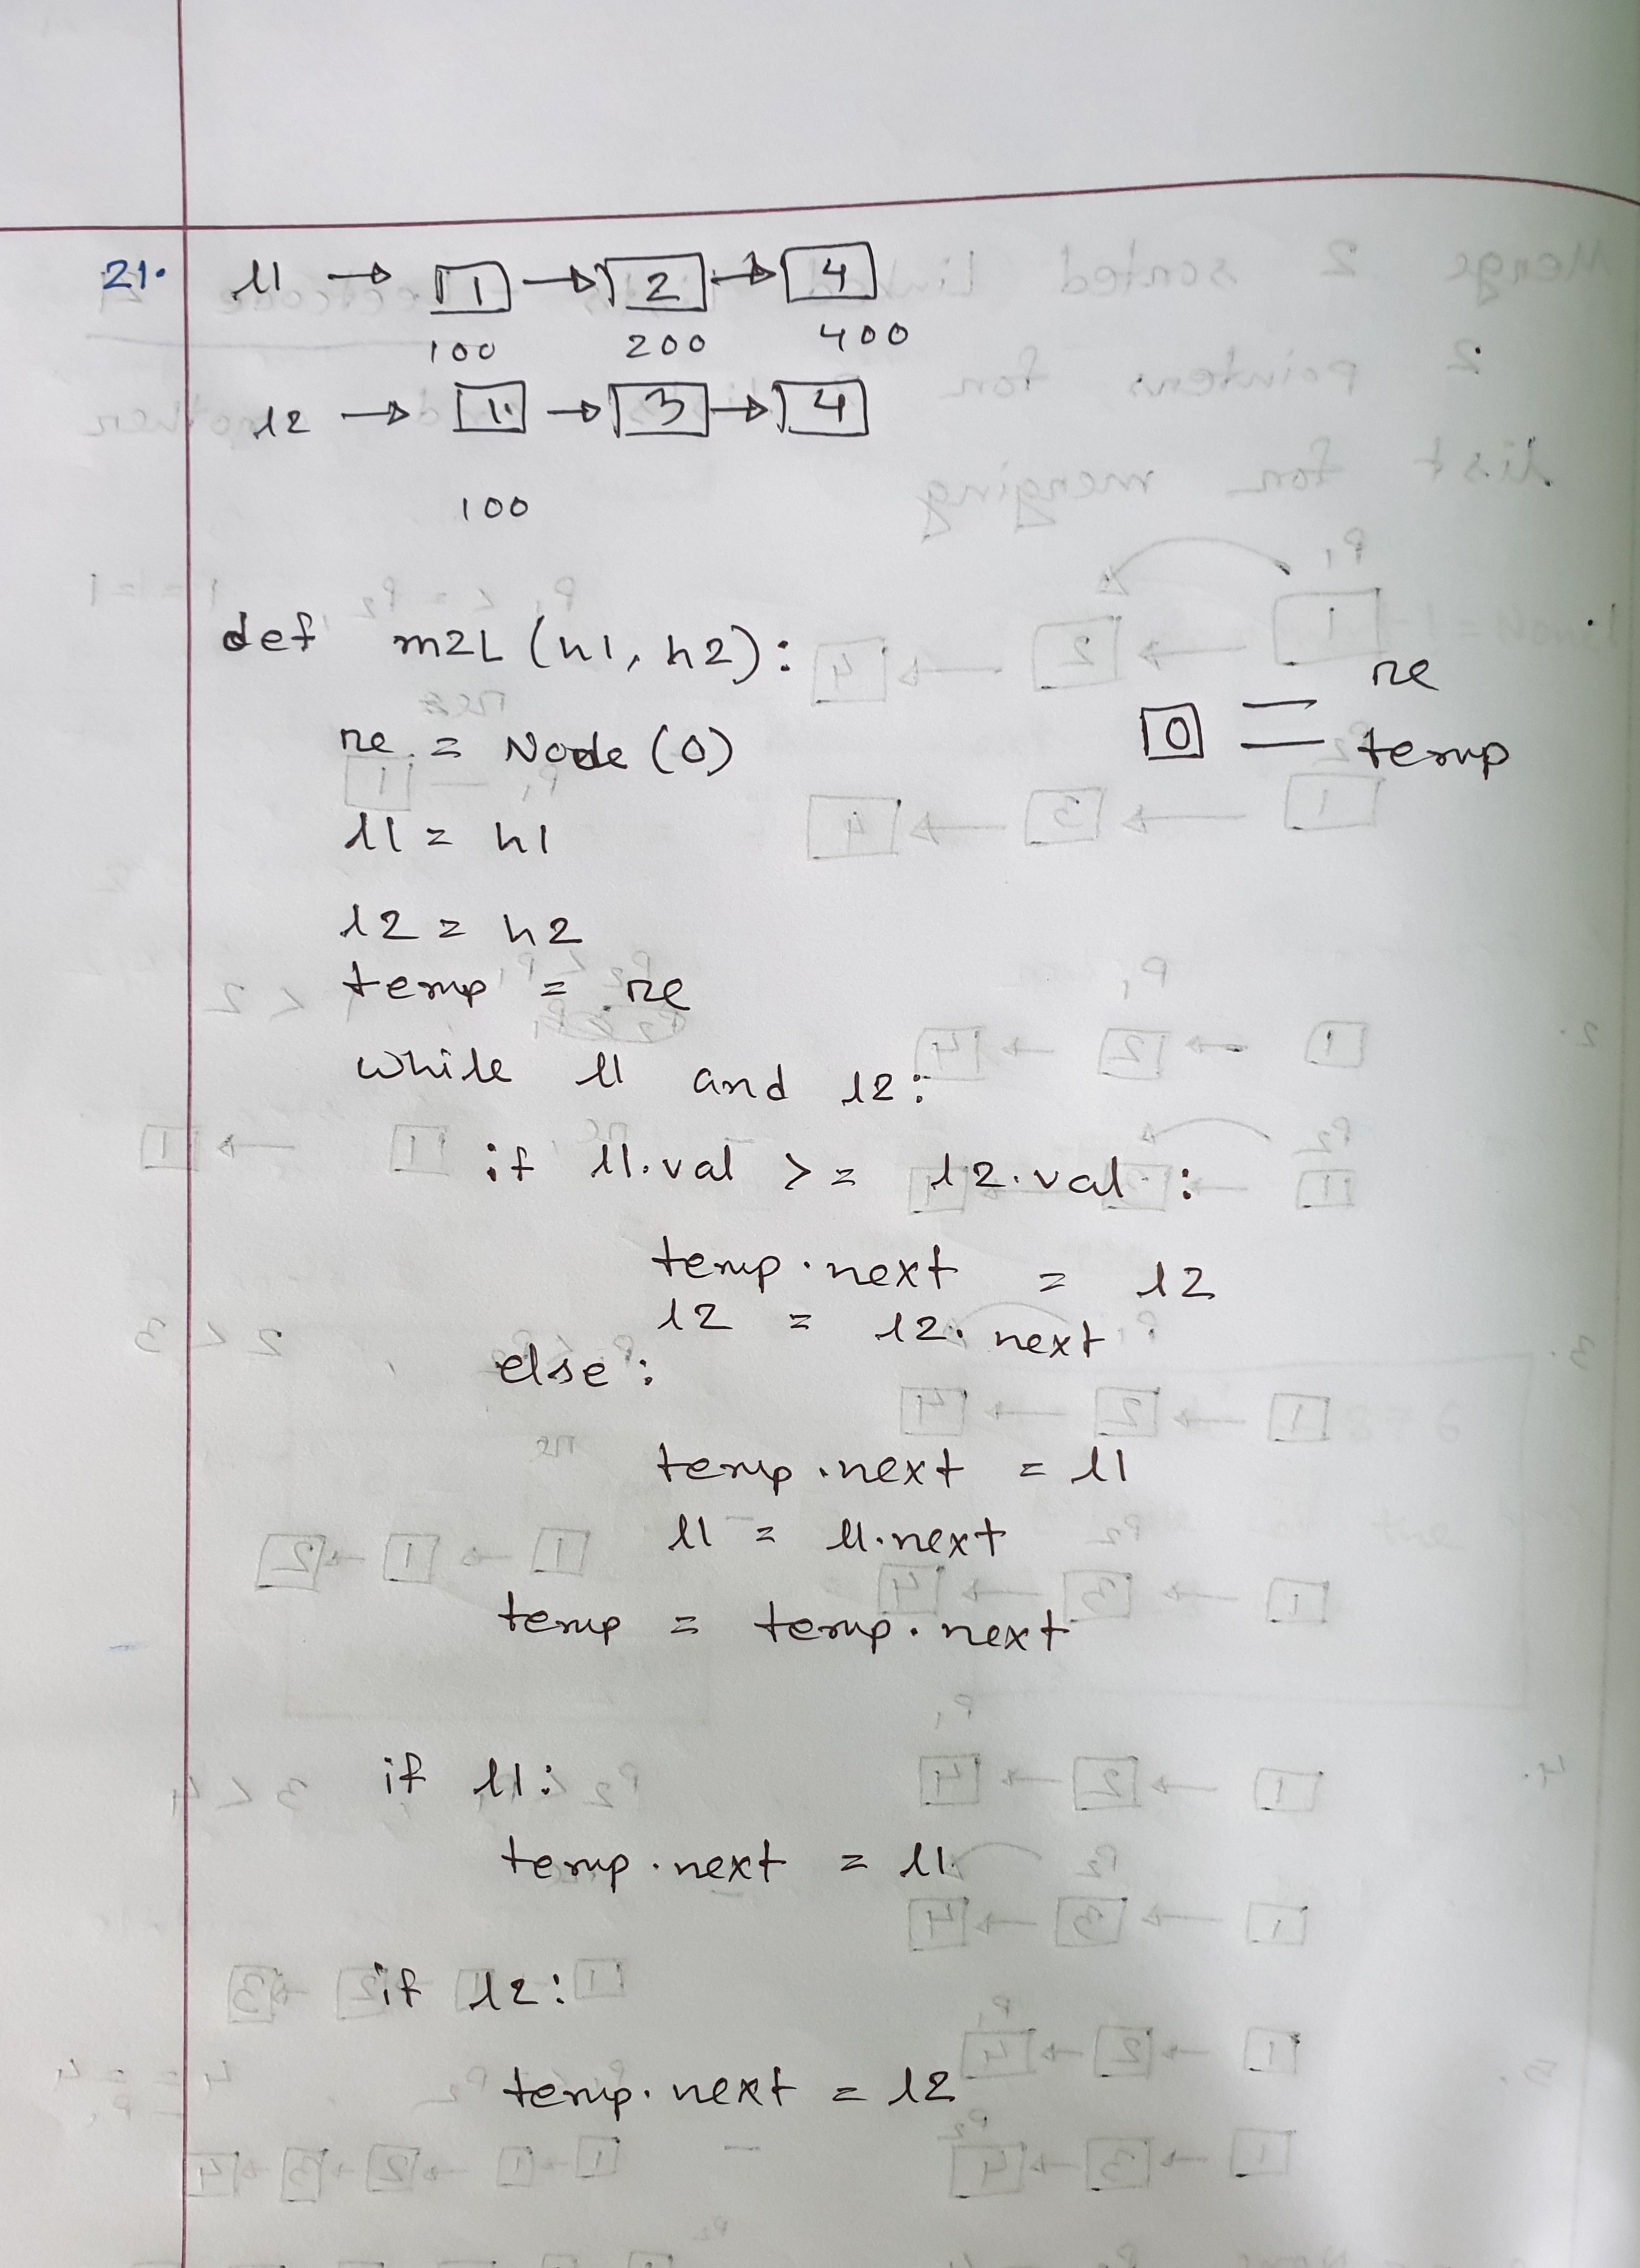 21. l1 → 1 → 2 → 4
100 200 400
l2 → 1 → 3 → 4
100
def m2L (h1, h2):
re = Node (0)
0 = re
temp
l1 = h1
l2 = h2
temp = re
while l1 and l2:
if l1.val >= l2.val :
temp.next = l2
l2 = l2.next
else :
temp.next = l1
l1 = l1.next
temp = temp.next
if l1:
temp.next = l1
if l2:
temp.next = l2